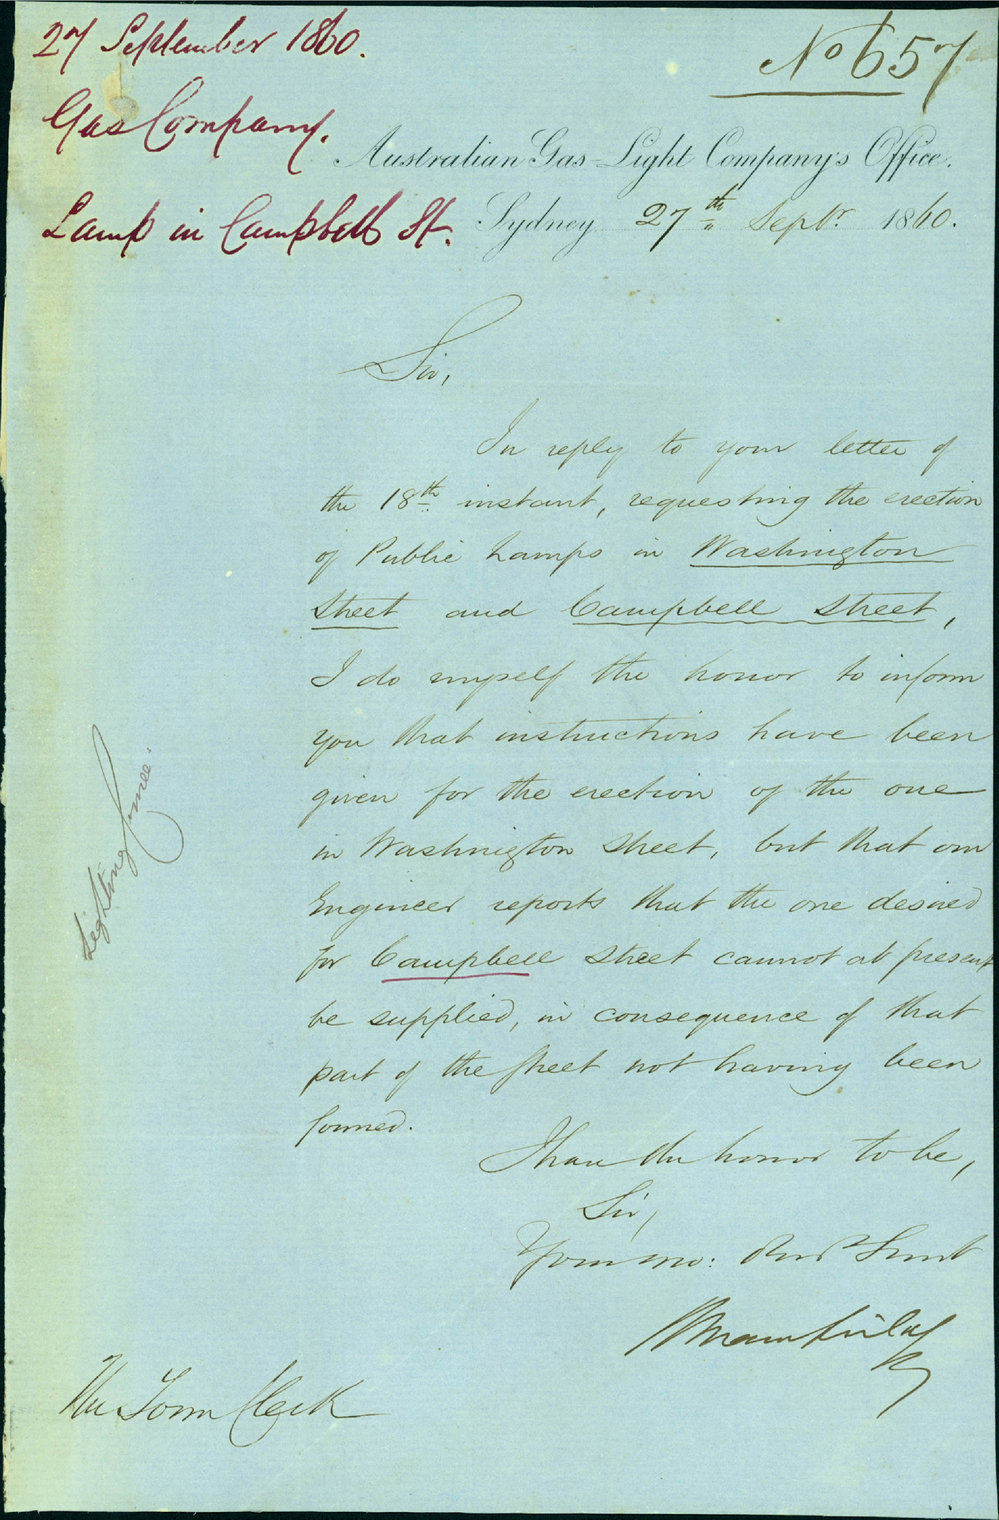 27 September 1860.
No 657
Gas Company.
Australian Gas-Light Company's Office.
Lamp in Campbell St.
Sydney 27th Septr. 1860.
Sir,
In reply to your letter of
the 18th instant, requesting the erection
of Public Lamps in Washington
Street and Campbell Street,
I do myself the honor to inform
you that instructions have been
given for the erection of the one
in Washington Street, but that our
Engineer reports that the one desired
for Campbell Street cannot at present
be supplied, in consequence of that
part of the Street not having been
formed.
I have the honor to be,
Sir,
Your mo: Obedt Servt
The Town Clerk
Lighting